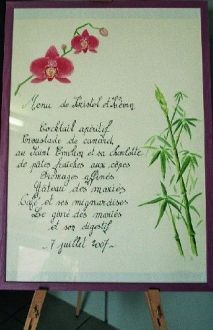 Menu de Kristel et Kévin
Cocktail apéritif
Croustade de canard
au Saint Emilion et sa charlotte
de pâtes fraîches aux cèpes
Fromages affinés
Gâteau des mariés
Café et ses mignardises
Le givré des mariés
et son digestif
7 juillet 2007